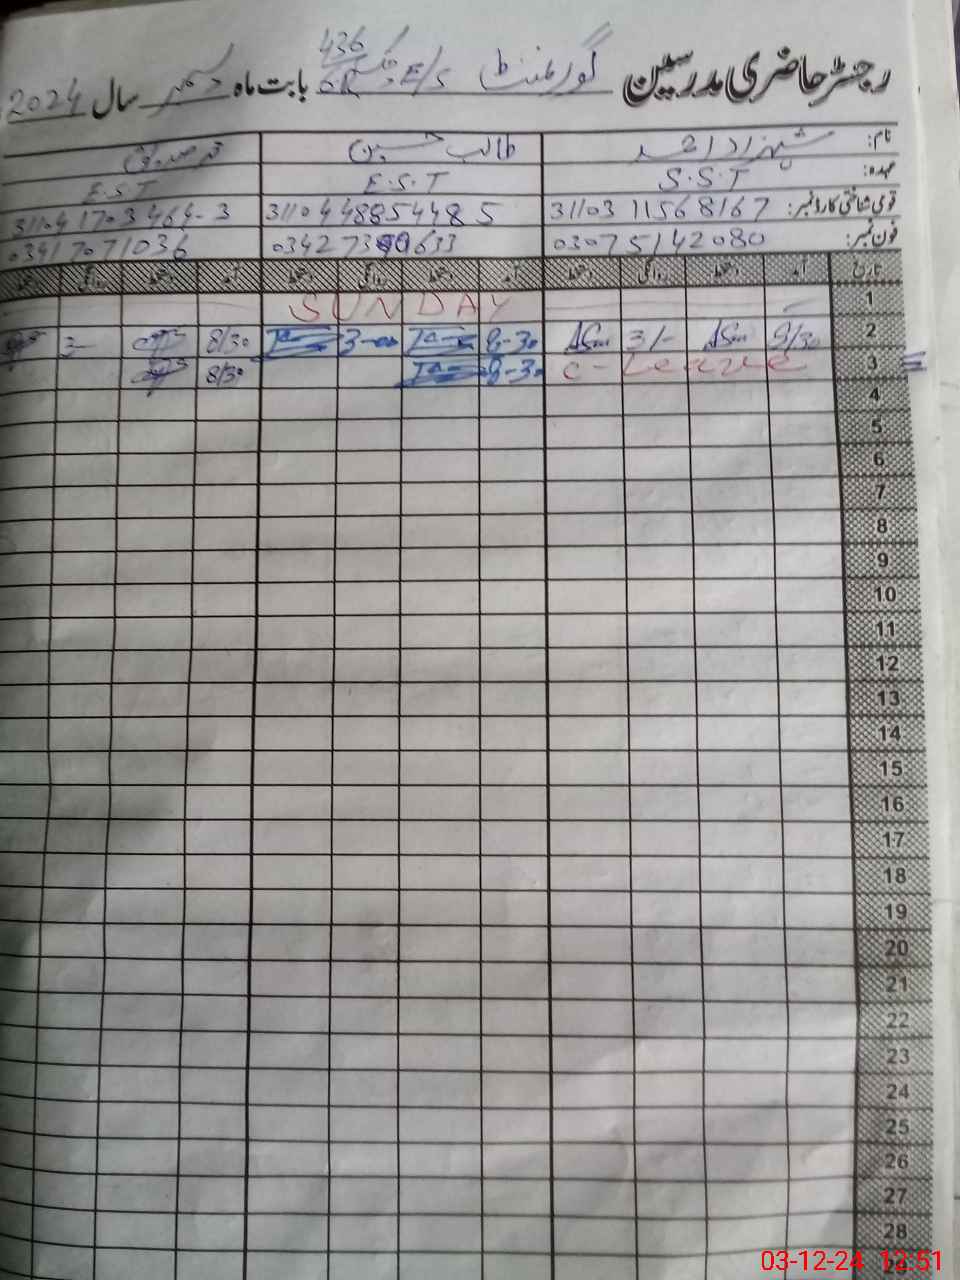 رجسٹر حاضری مدرسین گورنمنٹ E/S چک 436/6R بابت ماہ دسمبر سال 2024
نام: شہزاد احمد طالب حسین
عہدہ: S.S.T E.S.T E.S.T
قومی شناختی کارڈ نمبر: 31103 11568167 31104 48854485 31104 1703464-3
فون نمبر: 03075142080 03417071036
تاریخ آمد دستخط روانگی دستخط آمد دستخط روانگی دستخط آمد دستخط روانگی دستخط
1 SUNDAY
2 3/- 8-30 3-00 8/30 3-
3 C-Leave 8-30 8/30
4
5
6
7
8
9
10
11
12
13
14
15
16
17
18
19
20
21
22
23
24
25
26
27
28
03-12-24 12:51